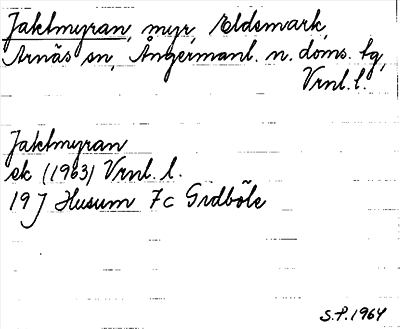 Jaktmyran, myr, Eldsmark,
Arnäs sn, Ångermanl. n. doms. tg,
Vrnl. l.
Jaktmyran
ek (1963) Vrnl. l.
19J Husum 7c Gidböle
S.P. 1964